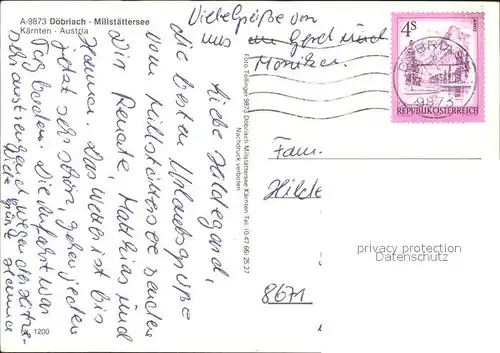 A-9873 Döbriach - Millstättersee
Kärnten - Austria
Viele Grüße von
uns Gerd und
Moniker.
Liebe Hildegard,
die besten Urlaubsgrüße
vom Millstättersee senden
Dir Renate, Matthias und
Hanna. Das Wetter ist bis
jetzt sehr schön, gehen jeden
Tag baden. Die Anfahrt war
sehr anstrengend wegen der Hitze.
Viele Grüße Hanna
1200
Foto Tollinger 9873 Döbriach Millstättersee Kärnten Tel. (0 47 66) 25 27
Nachdruck verboten
4S
9873
REPUBLIK ÖSTERREICH
Fam.
Hilde
8671
privacy protection
Datenschutz